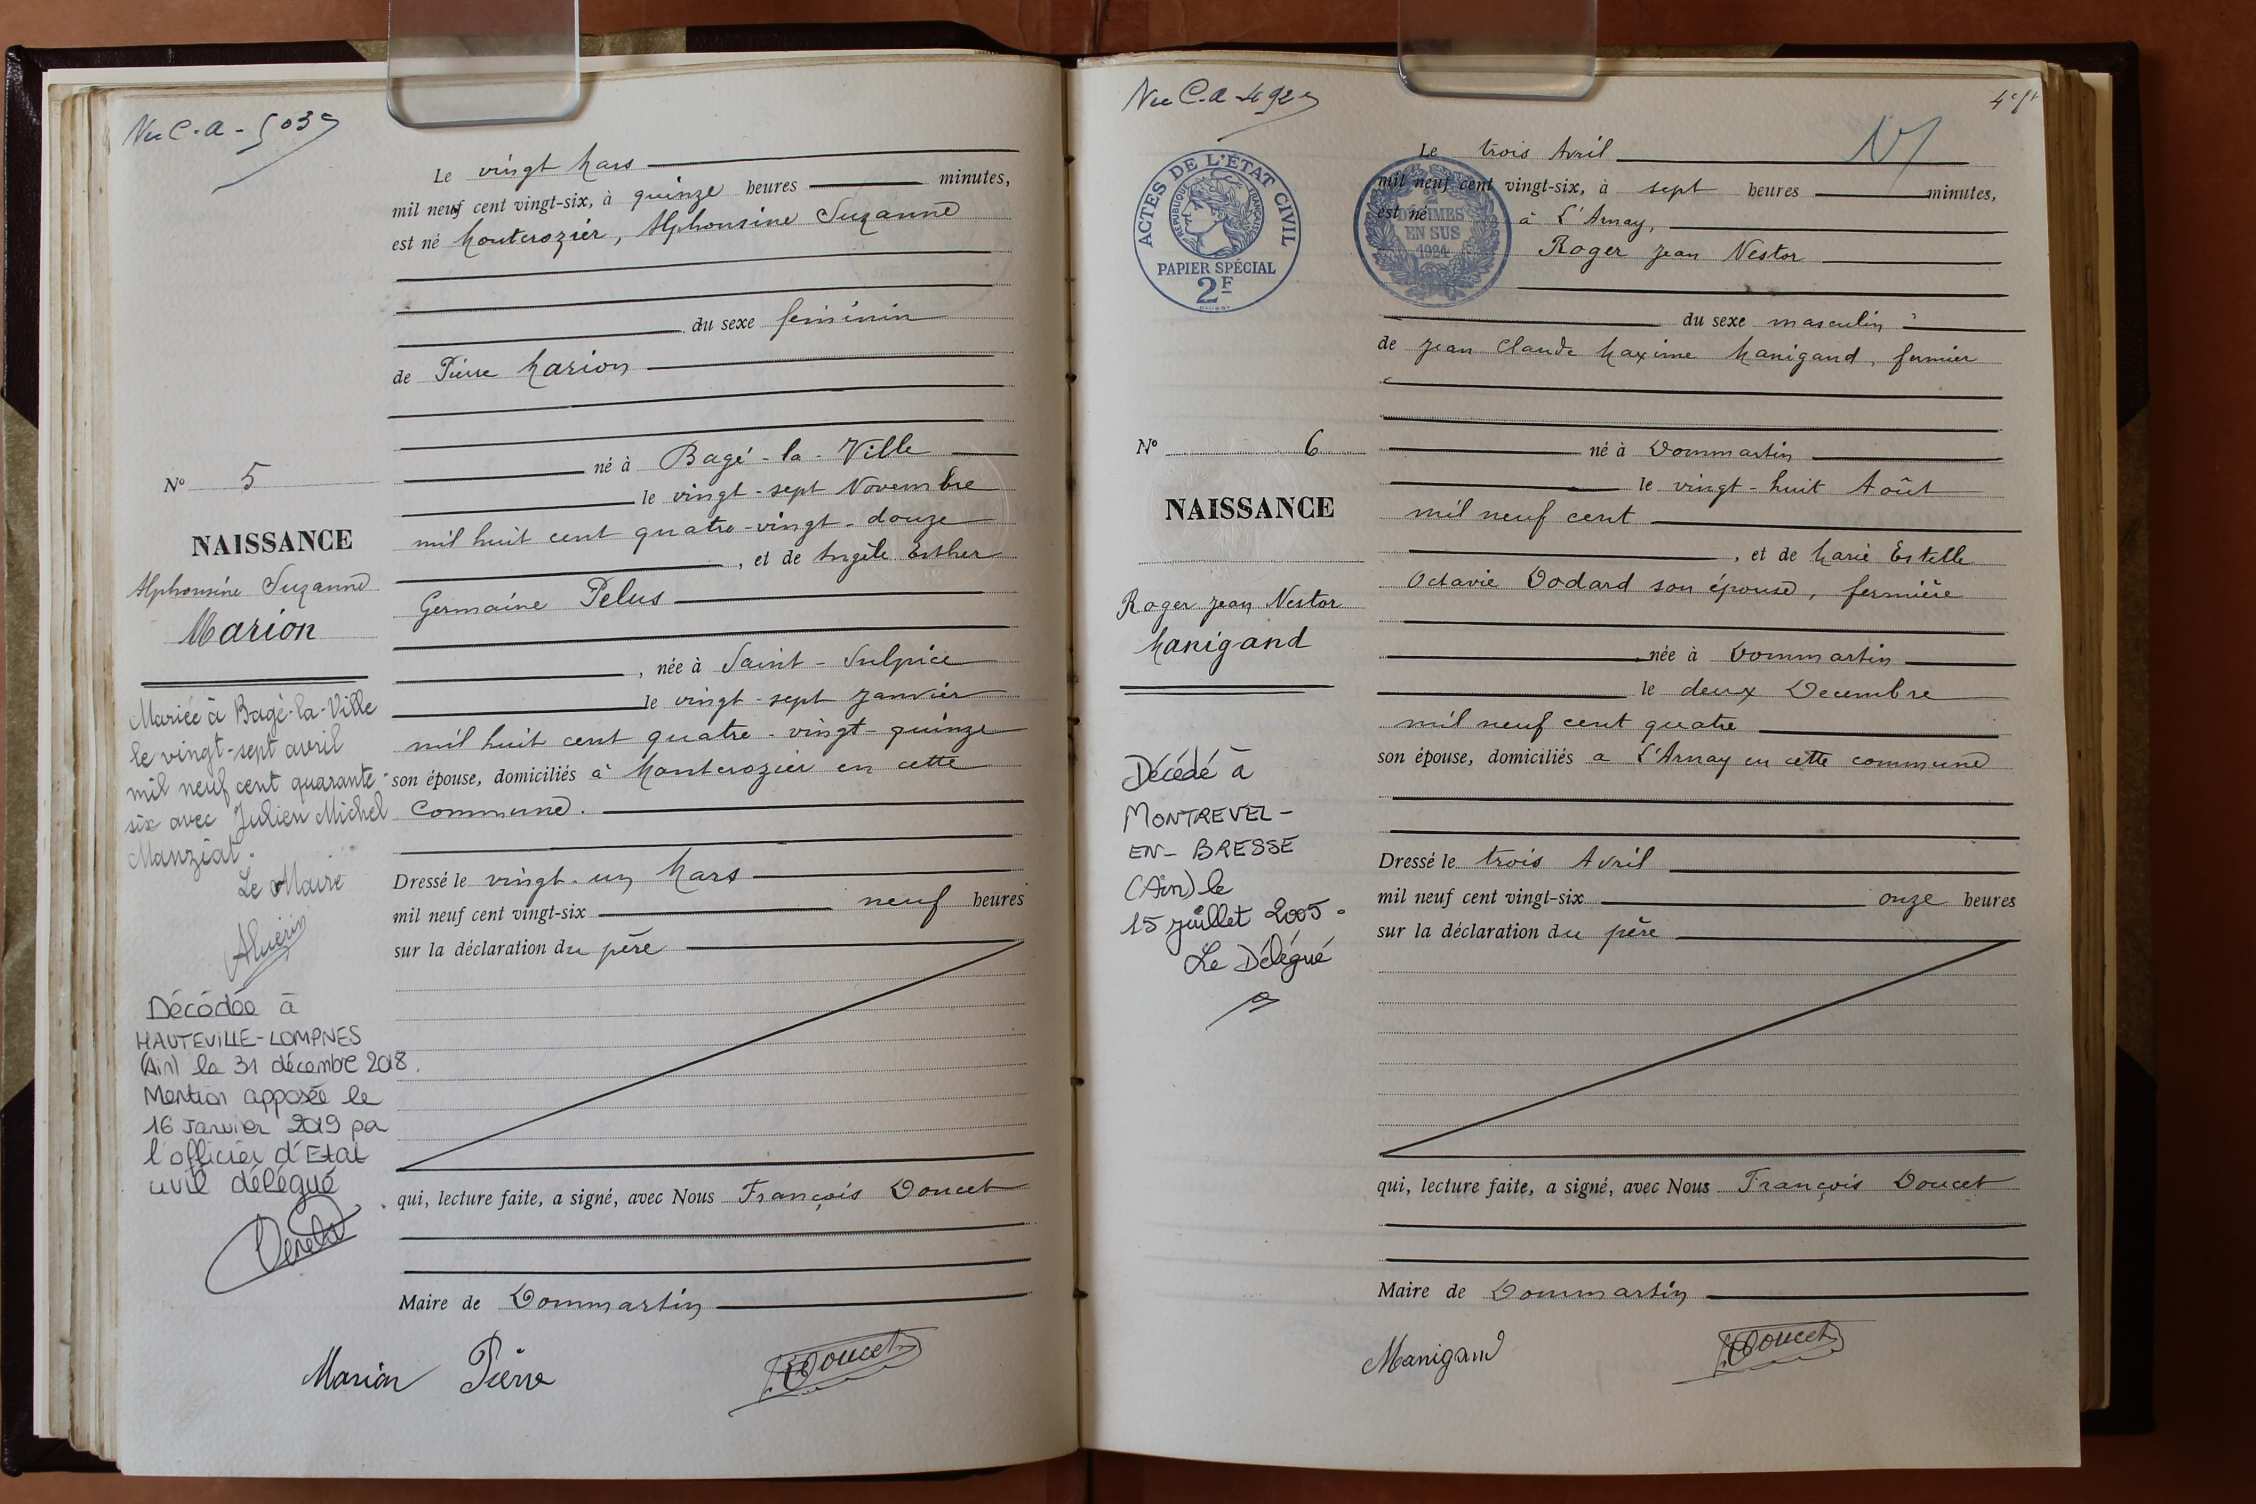 Vu C.A - 5035
Le vingt Mars
mil neuf cent vingt-six, à quinze heures minutes,
est né Monterozier, Alphonsine Suzanne
du sexe féminin
de Pierre Marion
né à Bagé-la-Ville
le vingt-sept Novembre
mil huit cent quatre-vingt-douze
, et de Angèle Esther
Germaine Pelus
, née à Saint-Sulpice
le vingt-sept Janvier
mil huit cent quatre-vingt-quinze
son épouse, domiciliés à Monterozier en cette
commune.
Dressé le vingt-un Mars
mil neuf cent vingt-six neuf heures
sur la déclaration du père
qui, lecture faite, a signé, avec Nous François Doucet
Maire de Dommartin
Marion Pierre
Doucet
N° 5
NAISSANCE
Alphonsine Suzanne
Marion
Mariée à Bagé-la-Ville
le vingt-sept avril
mil neuf cent quarante-
six avec Julien Michel
Manziat.
Le Maire
Décédée à
HAUTEVILLE-LOMPNES
(Ain) le 31 décembre 2018.
Mention apposée le
16 Janvier 2019 par
l'officier d'Etat
civil délégué
Vu C.A - 492
4e ft
ACTES DE L'ÉTAT CIVIL
RÉPUBLIQUE FRANÇAISE
PAPIER SPÉCIAL
2F
2
DÉCIMES
EN SUS
1924
Le trois Avril
mil neuf cent vingt-six, à sept heures minutes,
est né à L'Arnay,
Roger Jean Nestor
du sexe masculin
de Jean Claude Maxime Manigand, fermier
né à Dommartin
le vingt-huit Août
mil neuf cent
, et de Marie Estelle
Octavie Dodard son épouse, fermière
née à Dommartin
le deux Decembre
mil neuf cent quatre
son épouse, domiciliés a L'Arnay en cette commune
Dressé le trois Avril
mil neuf cent vingt-six onze heures
sur la déclaration du père
qui, lecture faite, a signé, avec Nous François Doucet
Maire de Dommartin
Manigand
Doucet
N° 6
NAISSANCE
Roger Jean Nestor
Manigand
Décédé à
MONTREVEL-
EN-BRESSE
(Ain) le
15 juillet 2005.
Le Délégué